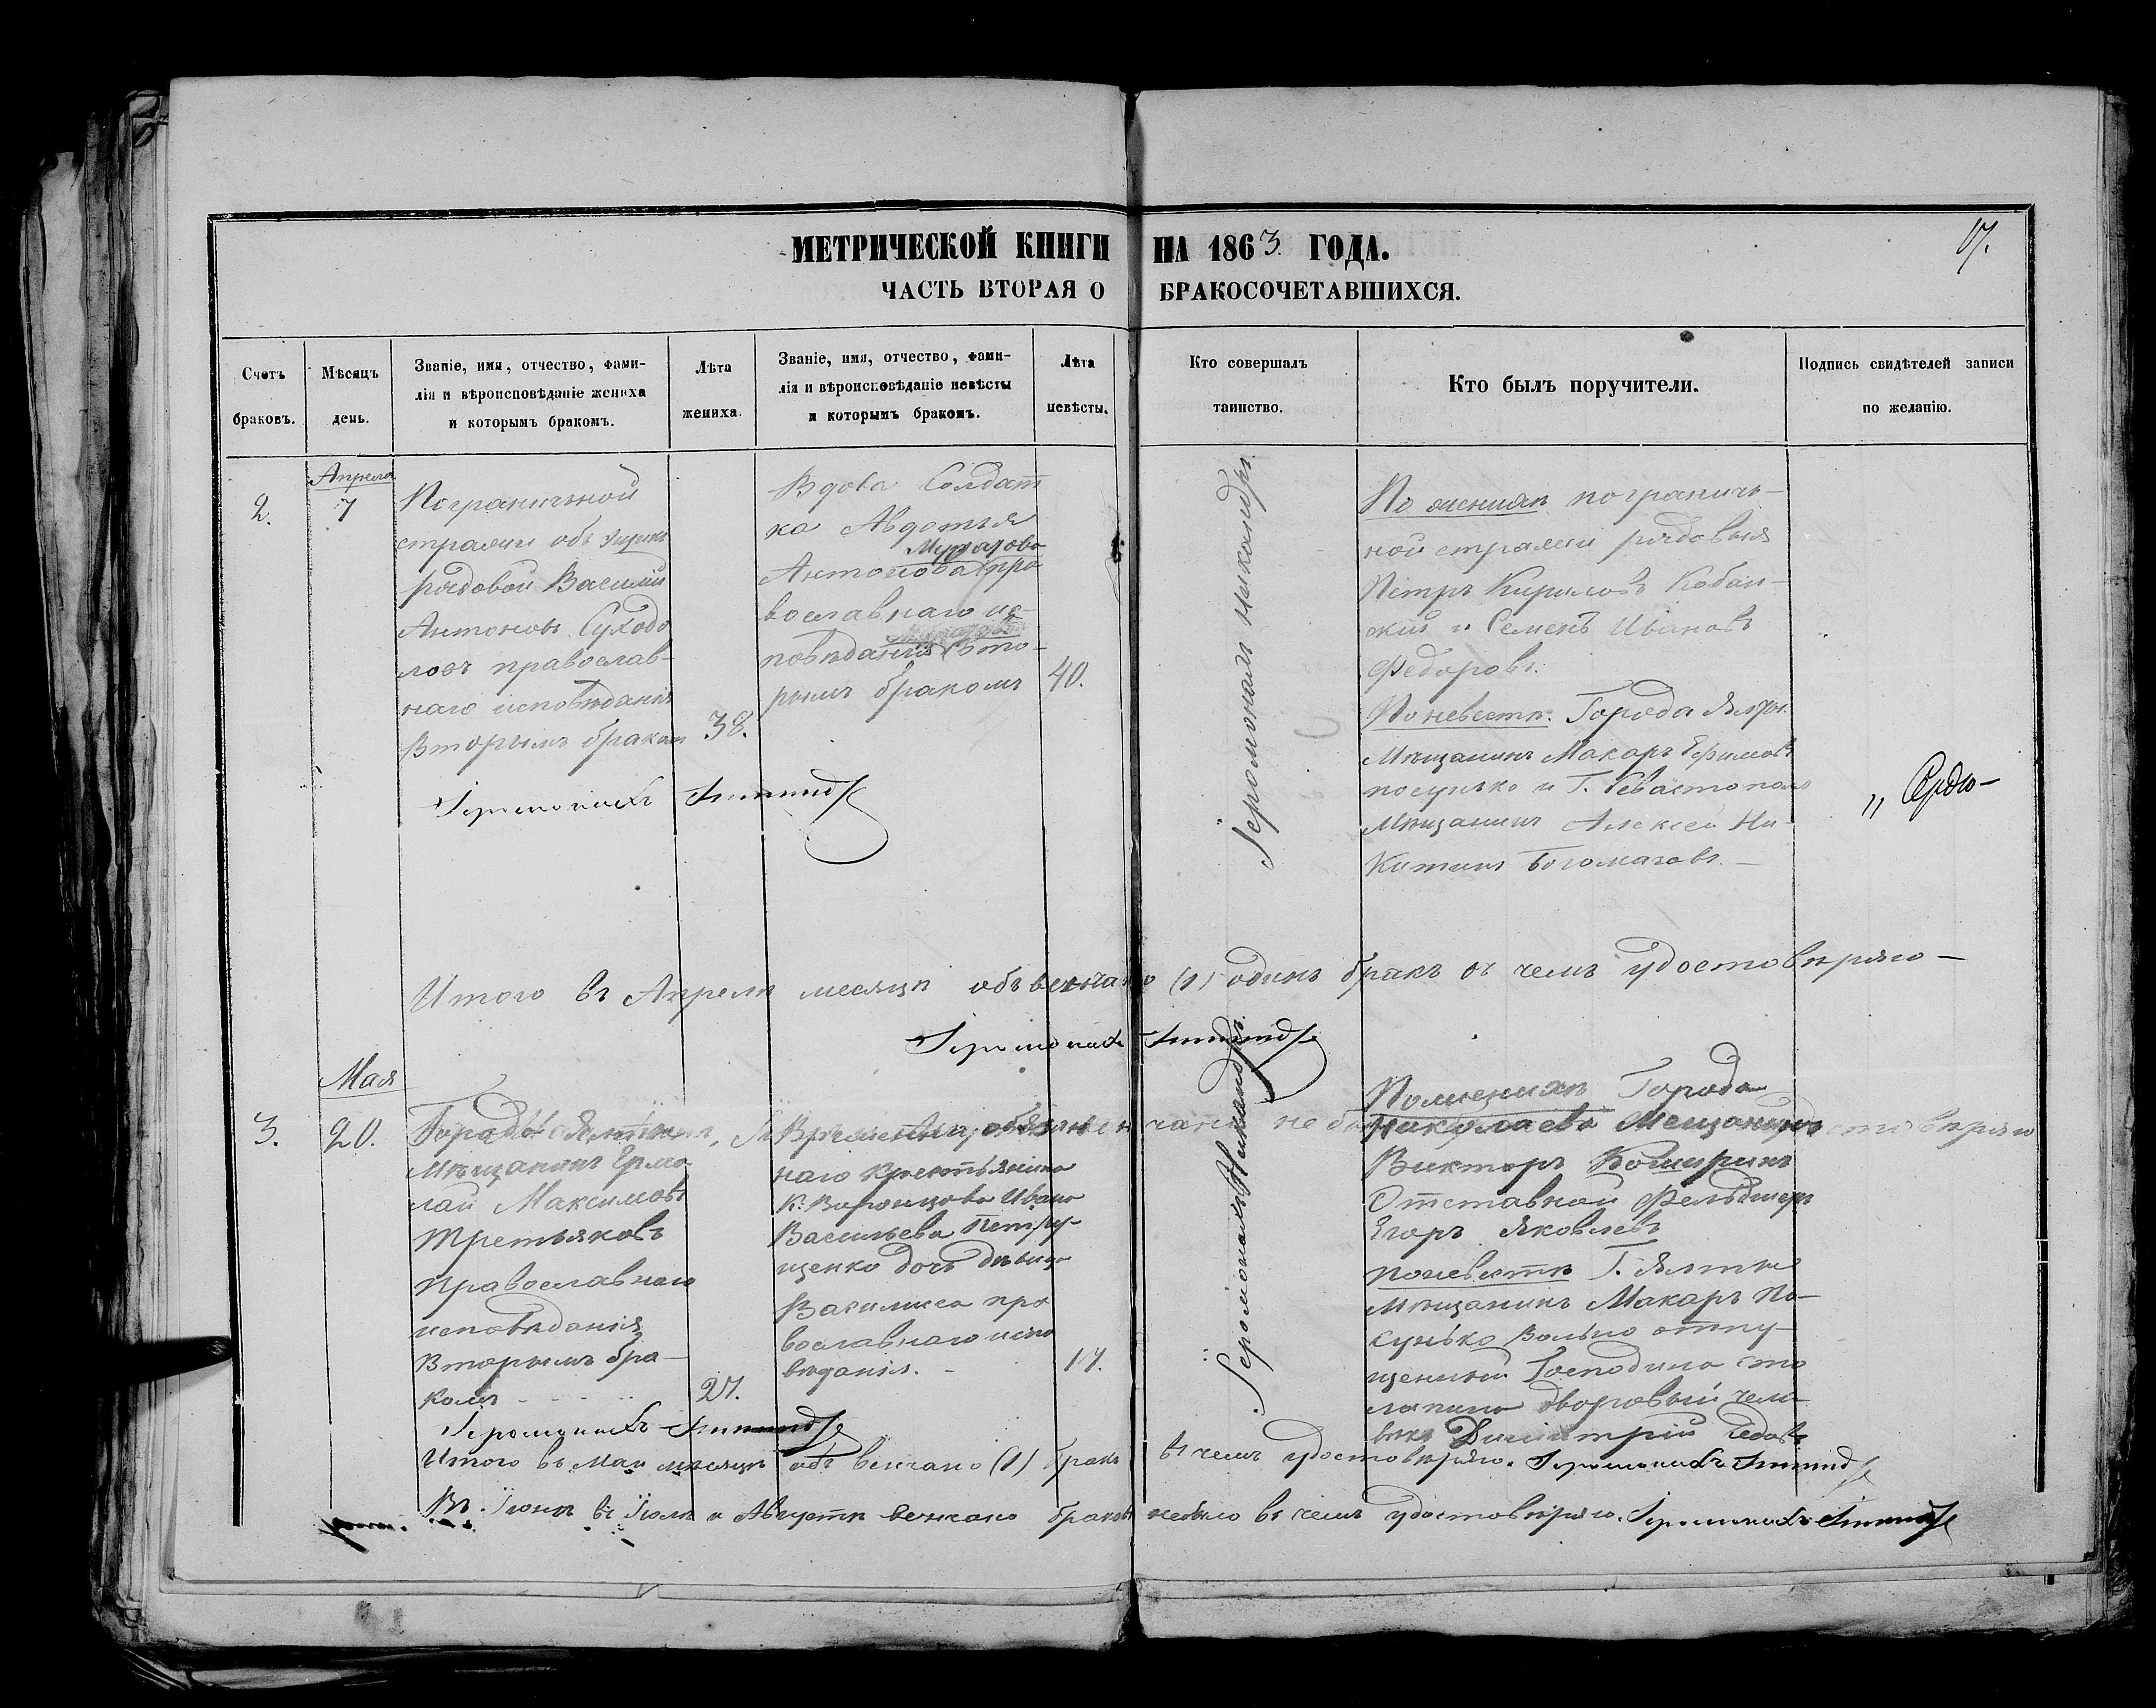 17.
МЕТРИЧЕСКОЙ КНИГИ НА 1863 ГОДА.
ЧАСТЬ ВТОРАЯ О БРАКОСОЧЕТАВШИХСЯ.
Счетъ
браковъ.
Мѣсяцъ
день.
Званіе, имя, отчество, фами-
лія и вѣроисповѣданіе жениха
и которымъ бракомъ.
Лѣта
жениха.
Званіе, имя, отчество, фами-
лія и вѣроисповѣданіе невѣсты
и которымъ бракомъ.
Лѣта
невѣсты.
Кто совершалъ
таинство.
Кто былъ поручители.
Подпись свидѣтелей записи
по желанію.
2.
Апреля
7
Пограничной
стражи объѣзщикъ
рядовой Василій
Антоновъ Суходо
ловъ православ-
наго исповѣданія
Вторымъ бракомъ
38.
Вдова Солдат
ка Авдотья
Антонова пра
вославнаго ис-
повѣданія Вто-
рымъ бракомъ
40.
Іеромонахъ Никандръ.
По женихѣ погранич-
ной стражи рядовыя
Петръ Кириловъ Кобан-
скій и Семенъ Ивановъ
Федоровъ.
По невестѣ. Города Ялты
Мѣщанинъ Макаръ Ефимовъ
посунько и Г. Севастополя
Мѣщанинъ Алексей Ни-
китинъ Богомазовъ. —
„ Сердю-
Іеромонахъ
Итого въ Апрелѣ месяцѣ объвенчано (1) одинъ бракъ въ чемъ удостовѣряю —
Іеромонахъ
3.
Мая
20.
Города Ялты
Мѣщанинъ Ермо
лай Максимовъ
Третьяковъ
Православнаго
исповѣданія
Вторымъ бра-
комъ
27.
Временно обязан
наго крестьянина
К. Воронцова Ивана
Васильева Петру-
щенко дочь дѣвица
Василиса пра
вославнаго испо
вѣданія. -
17.
Іеромонахъ Никандръ.
По женихѣ Города
Николаева Мещанинъ
Викторъ
Отставной Фельдшеръ
Егоръ Яковлевъ
по невестѣ Г. Ялты
Мѣщанинъ Макаръ По-
сунько Вольно отпу-
щенный Господина
дворовый чело
векъ Димитрій
Іеромонахъ
Итого въ Маи месяцѣ объ венчано (1) бракъ въ чемъ удостовѣряю. Іеромонахъ
Въ Іюнѣ въ Іюлѣ и Августѣ венчано браковъ небыло въ чемъ удостовѣряю. Іеромонахъ